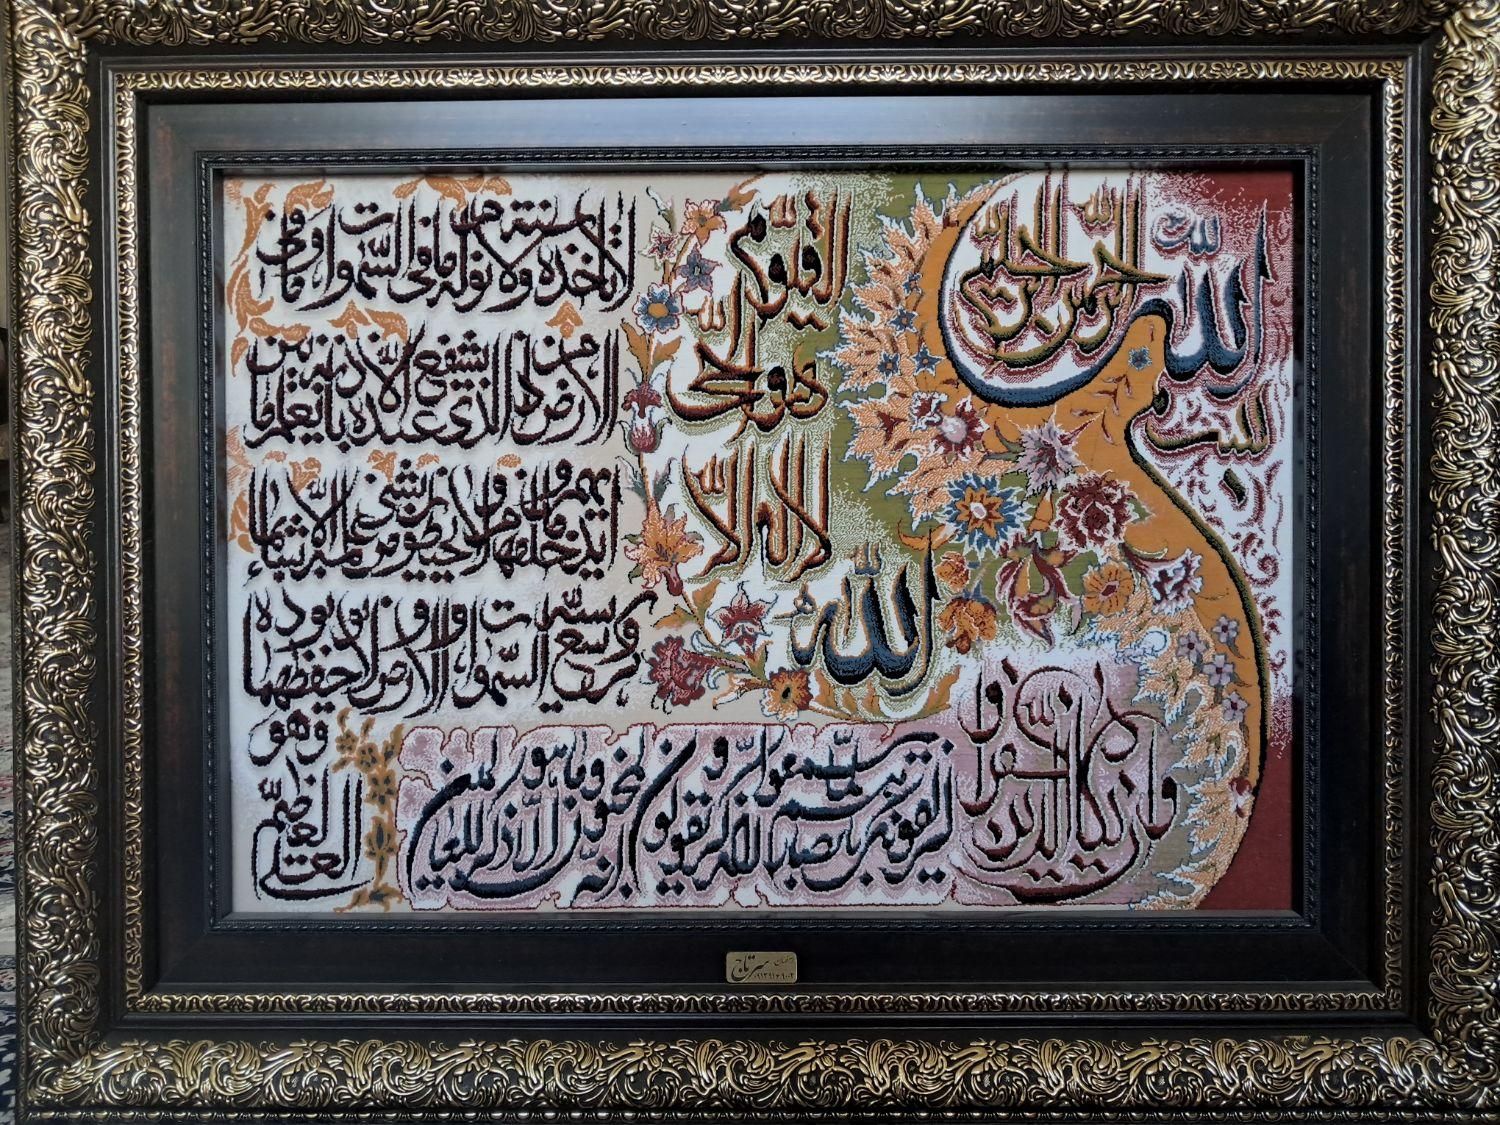 بسم الله الرحمن الرحيم
الله
لا إله إلا
هو الحي
القيوم
لا تأخذه سنة ولا نوم له ما في السموات وما في
الأرض من ذا الذي يشفع عنده إلا بإذنه يعلم ما بين
أيديهم وما خلفهم ولا يحيطون بشيء من علمه إلا بما شاء
وسع كرسيه السموات والأرض ولا يؤده حفظهما
وهو
العلي العظيم
وإن يكاد الذين كفروا
ليزلقونك بأبصارهم لما سمعوا الذكر ويقولون إنه لمجنون وما هو إلا ذكر للعالمين
سرتاج